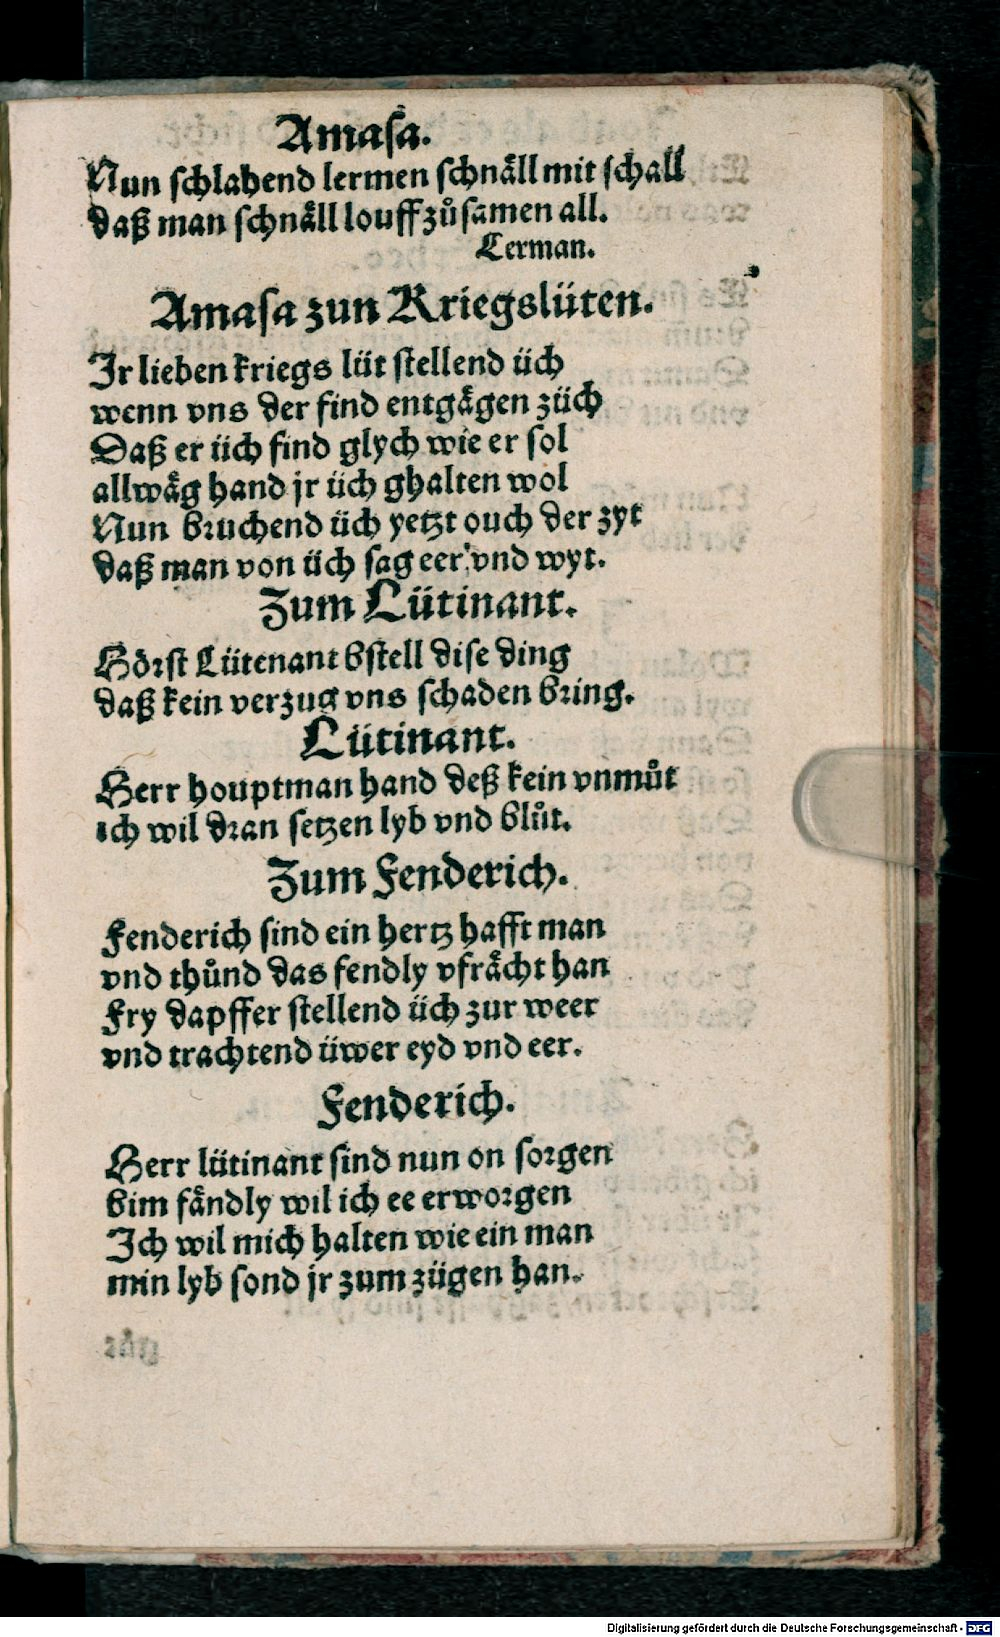 Amasa.
Nun schlahend lermen schnäll mit schall
daß man schnäll louff zůsamen all.
Lerman.
Amasa zun Kriegslüten.
Ir lieben kriegs lüt stellend üch
wenn vns der find entgägen züch
Daß er üch find glych wie er sol
allwäg hand jr üch ghalten wol
Nun bruchend üch yetzt ouch der zyt
daß man von üch sag eer vnd wyt.
Zum Lütinant.
Hörst Lütenant bstell dise ding
daß kein verzug vns schaden bring.
Lütinant.
Herr houptman hand deß kein vnmůt
ich wil dran setzen lyb vnd blůt.
Zum Fenderich.
Fenderich sind ein hertz hafft man
vnd thůnd das fendly vfrächt han
Fry dapffer stellend üch zur weer
vnd trachtend üwer eyd vnd eer.
Fenderich.
Herr lütinant sind nun on sorgen
bim fändly wil ich ee erworgen
Ich wil mich halten wie ein man
min lyb sond jr zum zügen han.
Digitalisierung gefördert durch die Deutsche Forschungsgemeinschaft - DFG